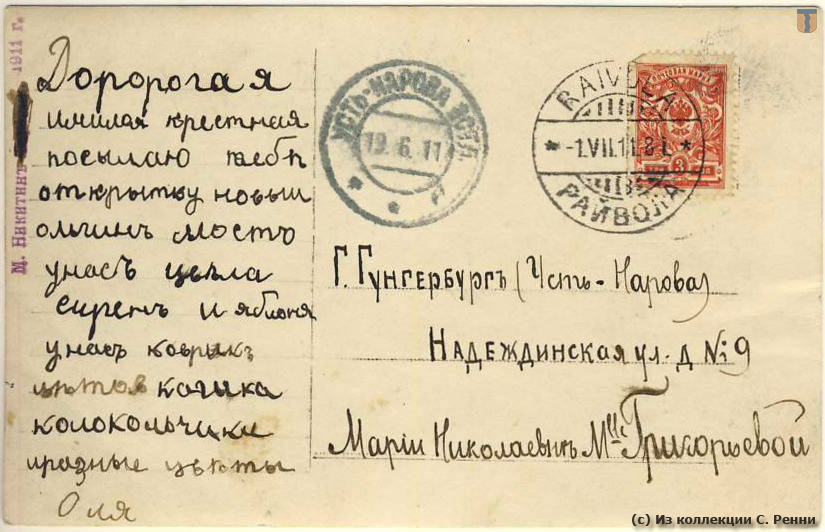 Дороpогая
имилая крестная
посылаю тебѣ
открытку новый
ольгинъ мостъ
унасъ цвѣла
сиренъ и яблоня
унасъ коврикъ
цвѣтов
колокольчики
иразные цвѣты
Оля
М. Никитинъ 1911 г.
УСТЬ-НАРОВА ЭСТЛ.
19.6.11
RAIVOLA
-1.VII.11.8 L.
РАЙВОЛА
ПОЧТОВАЯ МАРКА
3
Г. Гунгербургъ (Усть-Нарова)
Надеждинская ул. д № 9
Маріи Николаевнѣ
Григорьевой
(c) Из коллекции С. Ренни